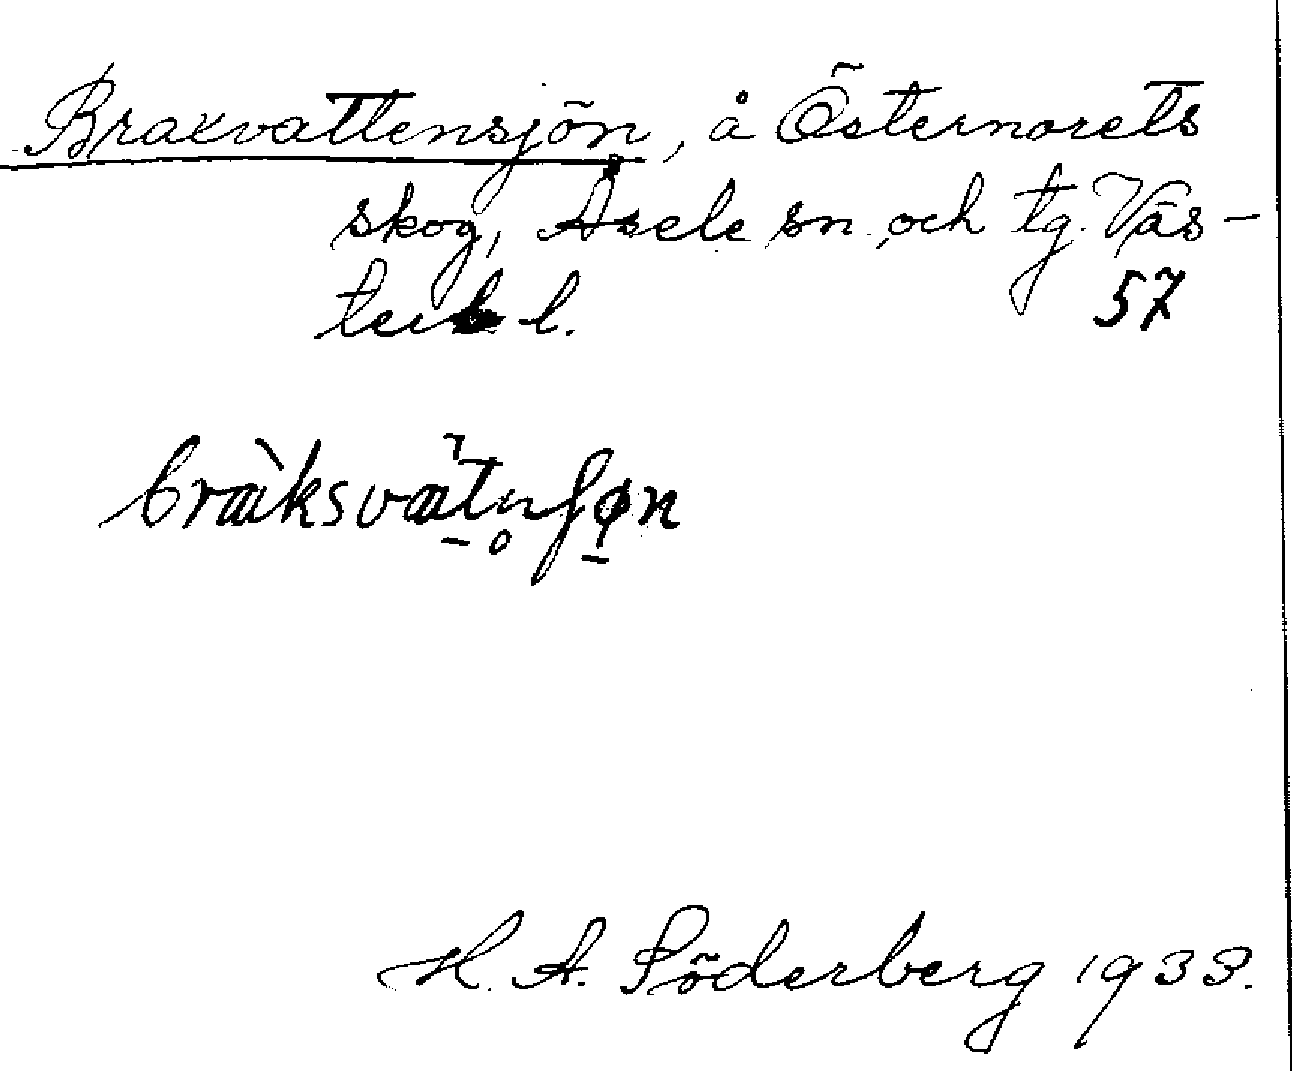 Braxvattensjön, å Östernorets
skog, Åsele sn och tg. Väs-
terb l.
57
bràksvatnʃøn
H. A. Söderberg 1933.